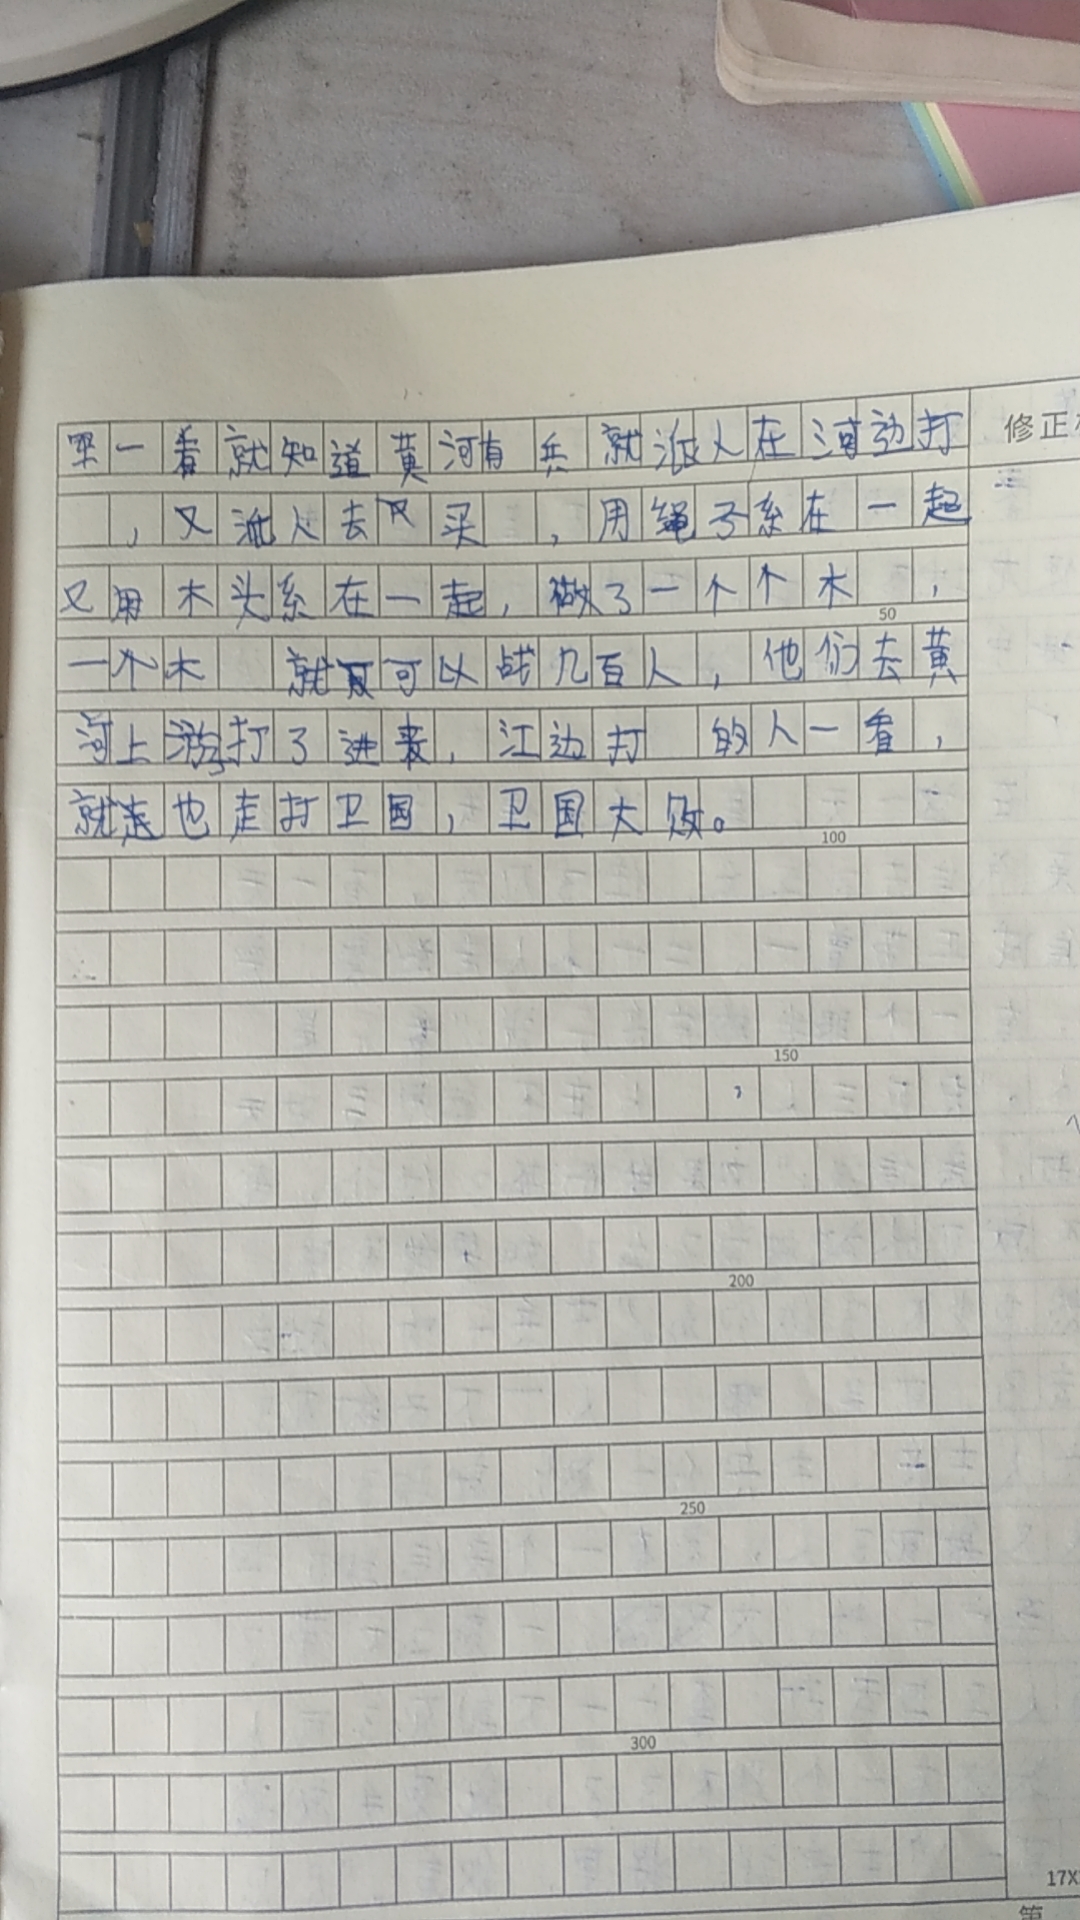 一看就知道黄河有兵就派人在河边打
修正
，又派人去又买，用绳子系在一起
又用木头系在一起，做了一个个木，
50
一个木就可可以战几百人，他们去黄
河上游打了进来，江边打的人一看，
就走也走打卫国，卫国大败。
100
150
200
250
300
17X
第